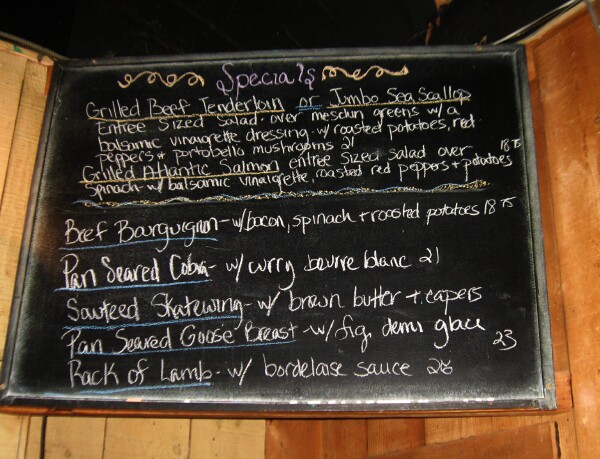 Specials
Grilled Beef Tenderloin or Jumbo Sea Scallop
Entree Sized salad over mesclun greens w/a
balsamic vinaigrette dressing w/ roasted potatoes, red
peppers + portobello mushrooms 21
Grilled Atlantic Salmon entree sized salad over 18 75
spinach w/ balsamic vinaigrette, roasted red peppers + potatoes
Beef Bourguignon - w/bacon, spinach + roasted potatoes 18 75
Pan Seared Cobia - w/ curry beurre blanc 21
Sauteed Skatewing - w/ brown butter + capers
Pan Seared Goose Breast - w/ fig demi glace 23
Rack of Lamb - w/ bordelaise sauce